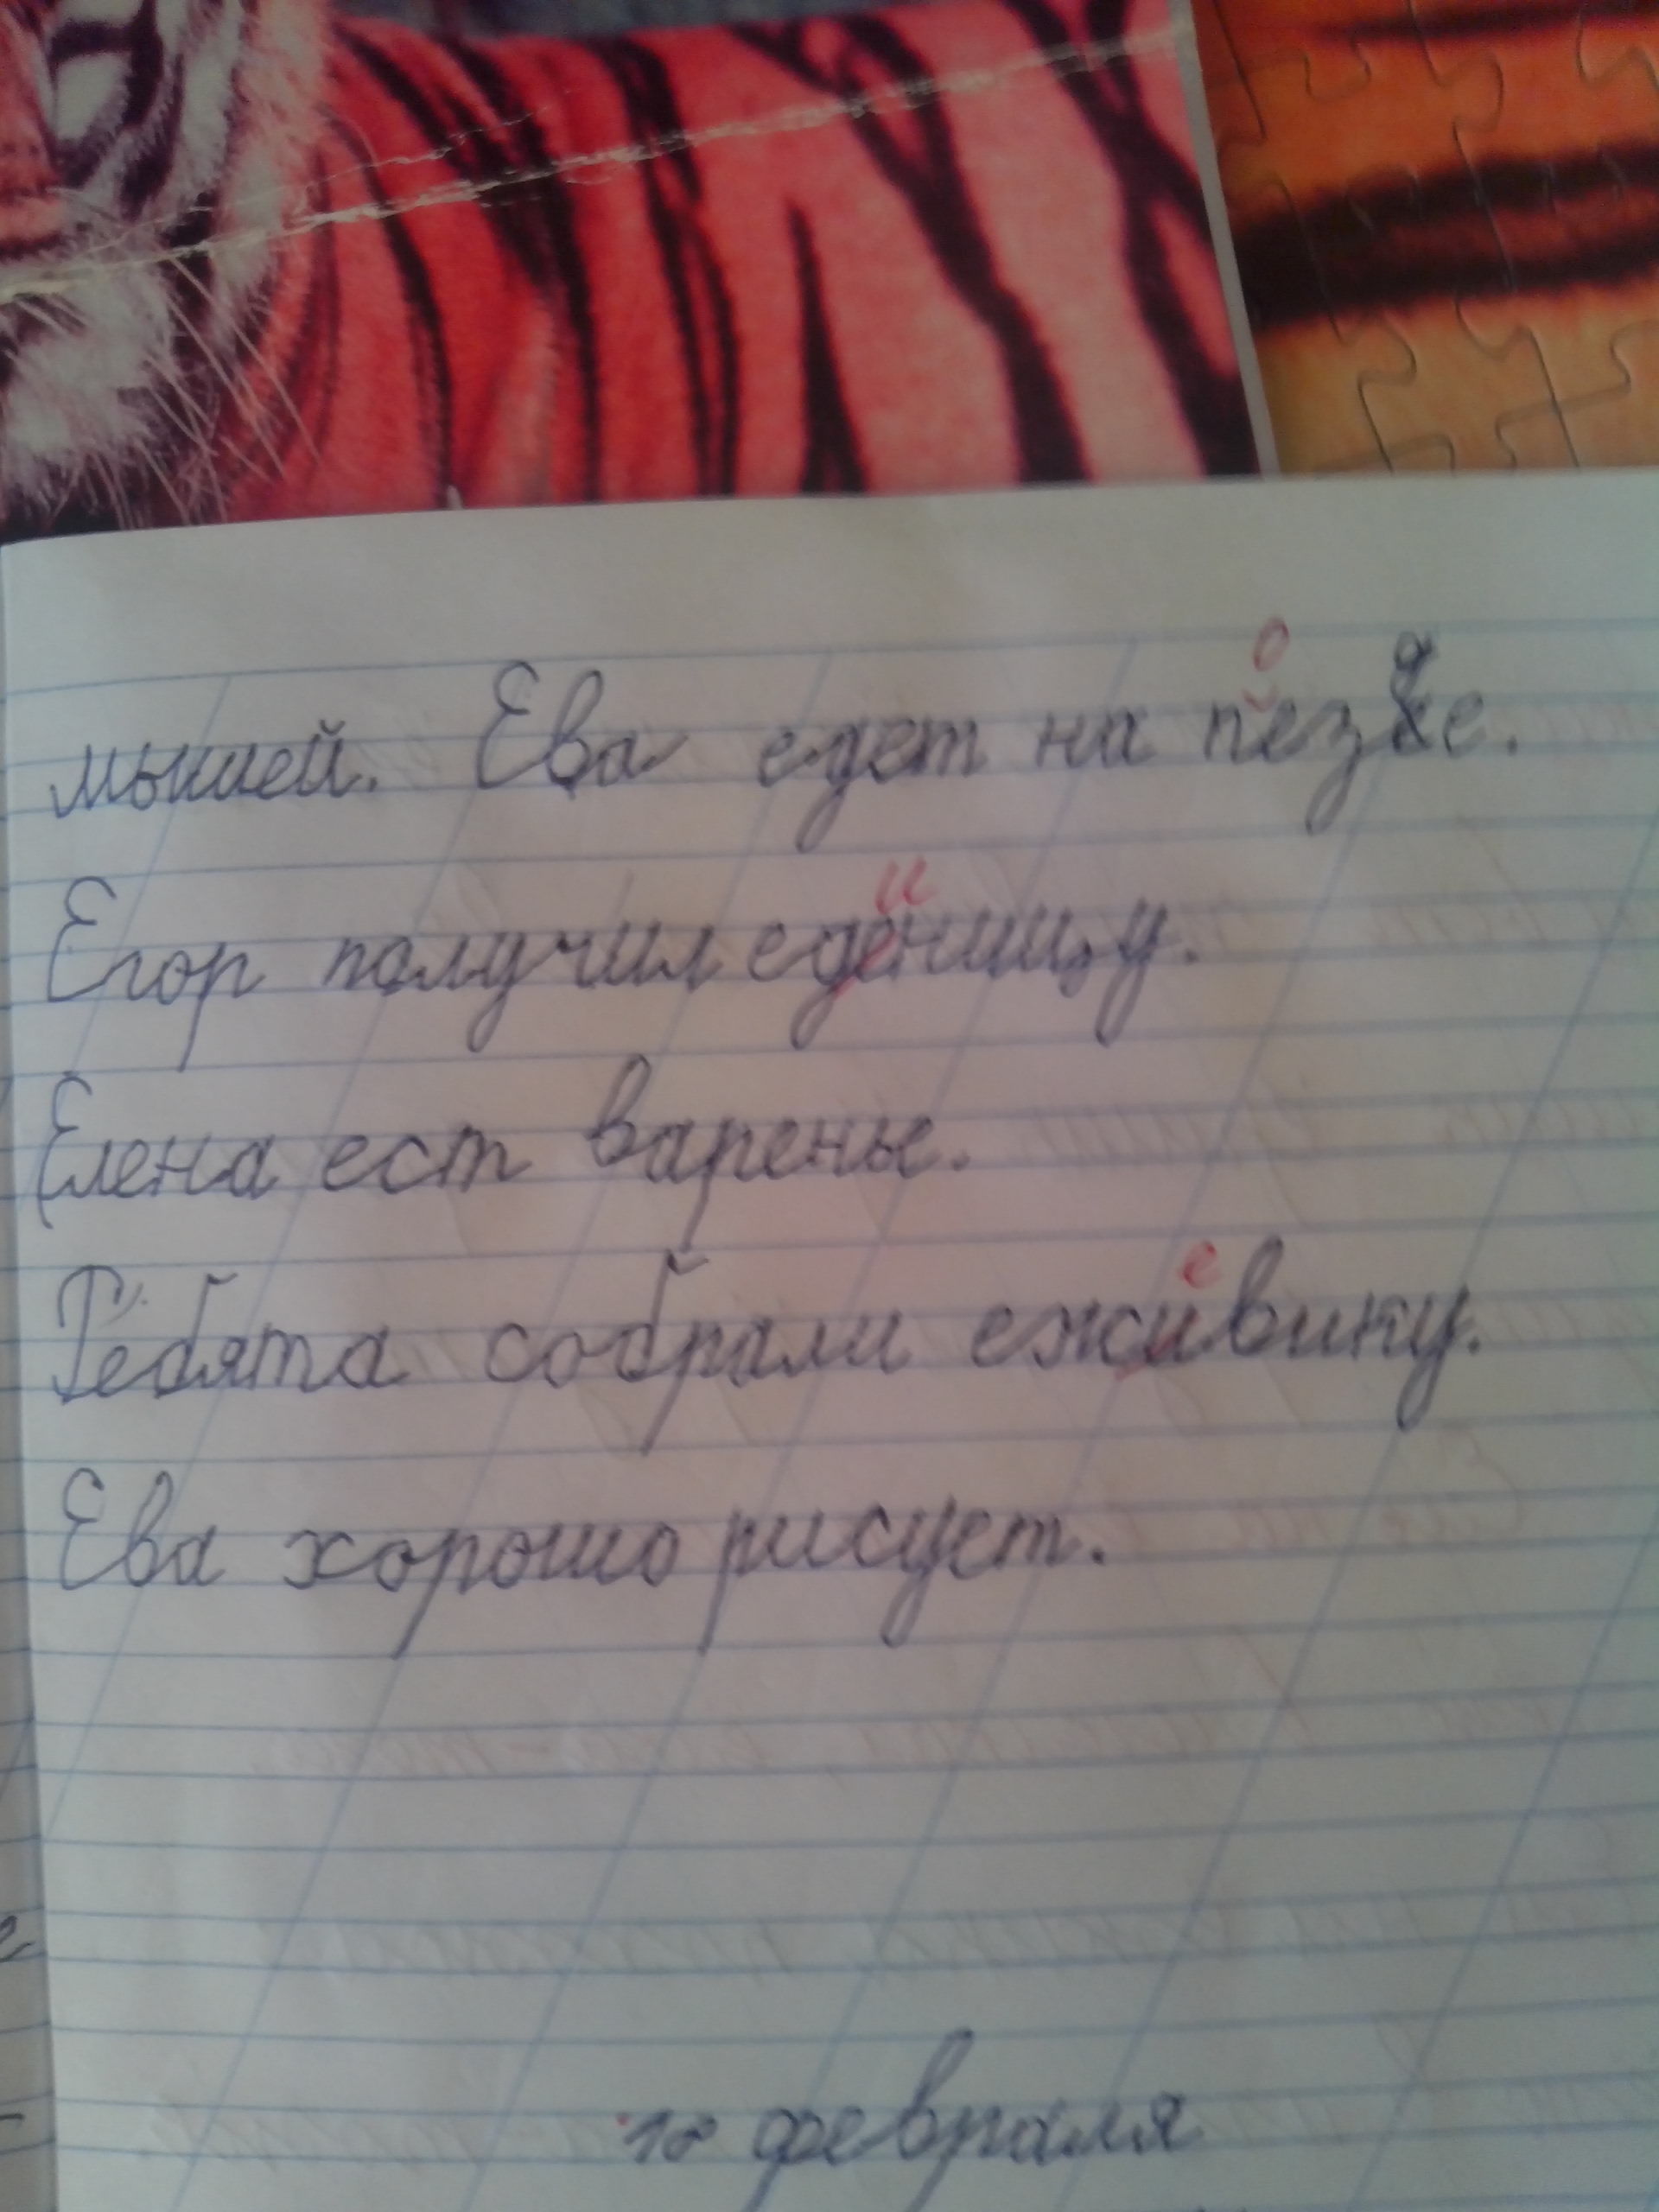 мышей. Ева едет на пезде.
Егор получил еденицу.
Елена ест варенье.
Ребята собрали еживику.
Ева хорошо рисует.
18 февраля